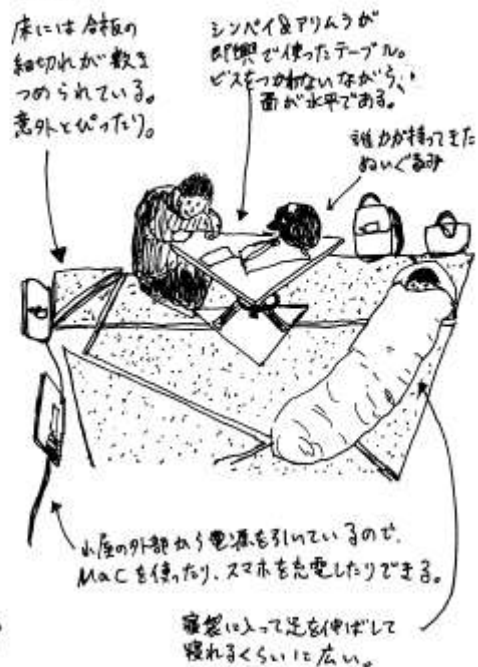 床には合板の
細切れが敷き
つめられている。
意外とぴったり。
シンペイ&アリムラが
即興で使ったテーブル。
ビスをつかわないながら、
面が水平である。
誰かが持ってきた
ぬいぐるみ
小屋の外部から電源を引いているので、
Macを使ったり、スマホを充電したりできる。
寝袋に入って足を伸ばして
寝れるくらいに広い。